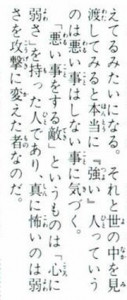 えてるみたいになる。それと世の中を見
渡してみると本当に『強い』人っていう
のは悪い事はしない事に気づく。
「悪い事をする敵」というものは「心に
弱さ」を持った人であり、真に怖いのは弱
さを攻撃に変えた者なのだ。